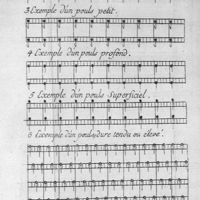 3 Exemple d'un pouls petit.
4 Exemple d'un pouls profond.
5 Exemple d'un pouls Superficiel.
6 Exemple d'un pouls dure tendu ou elevé.